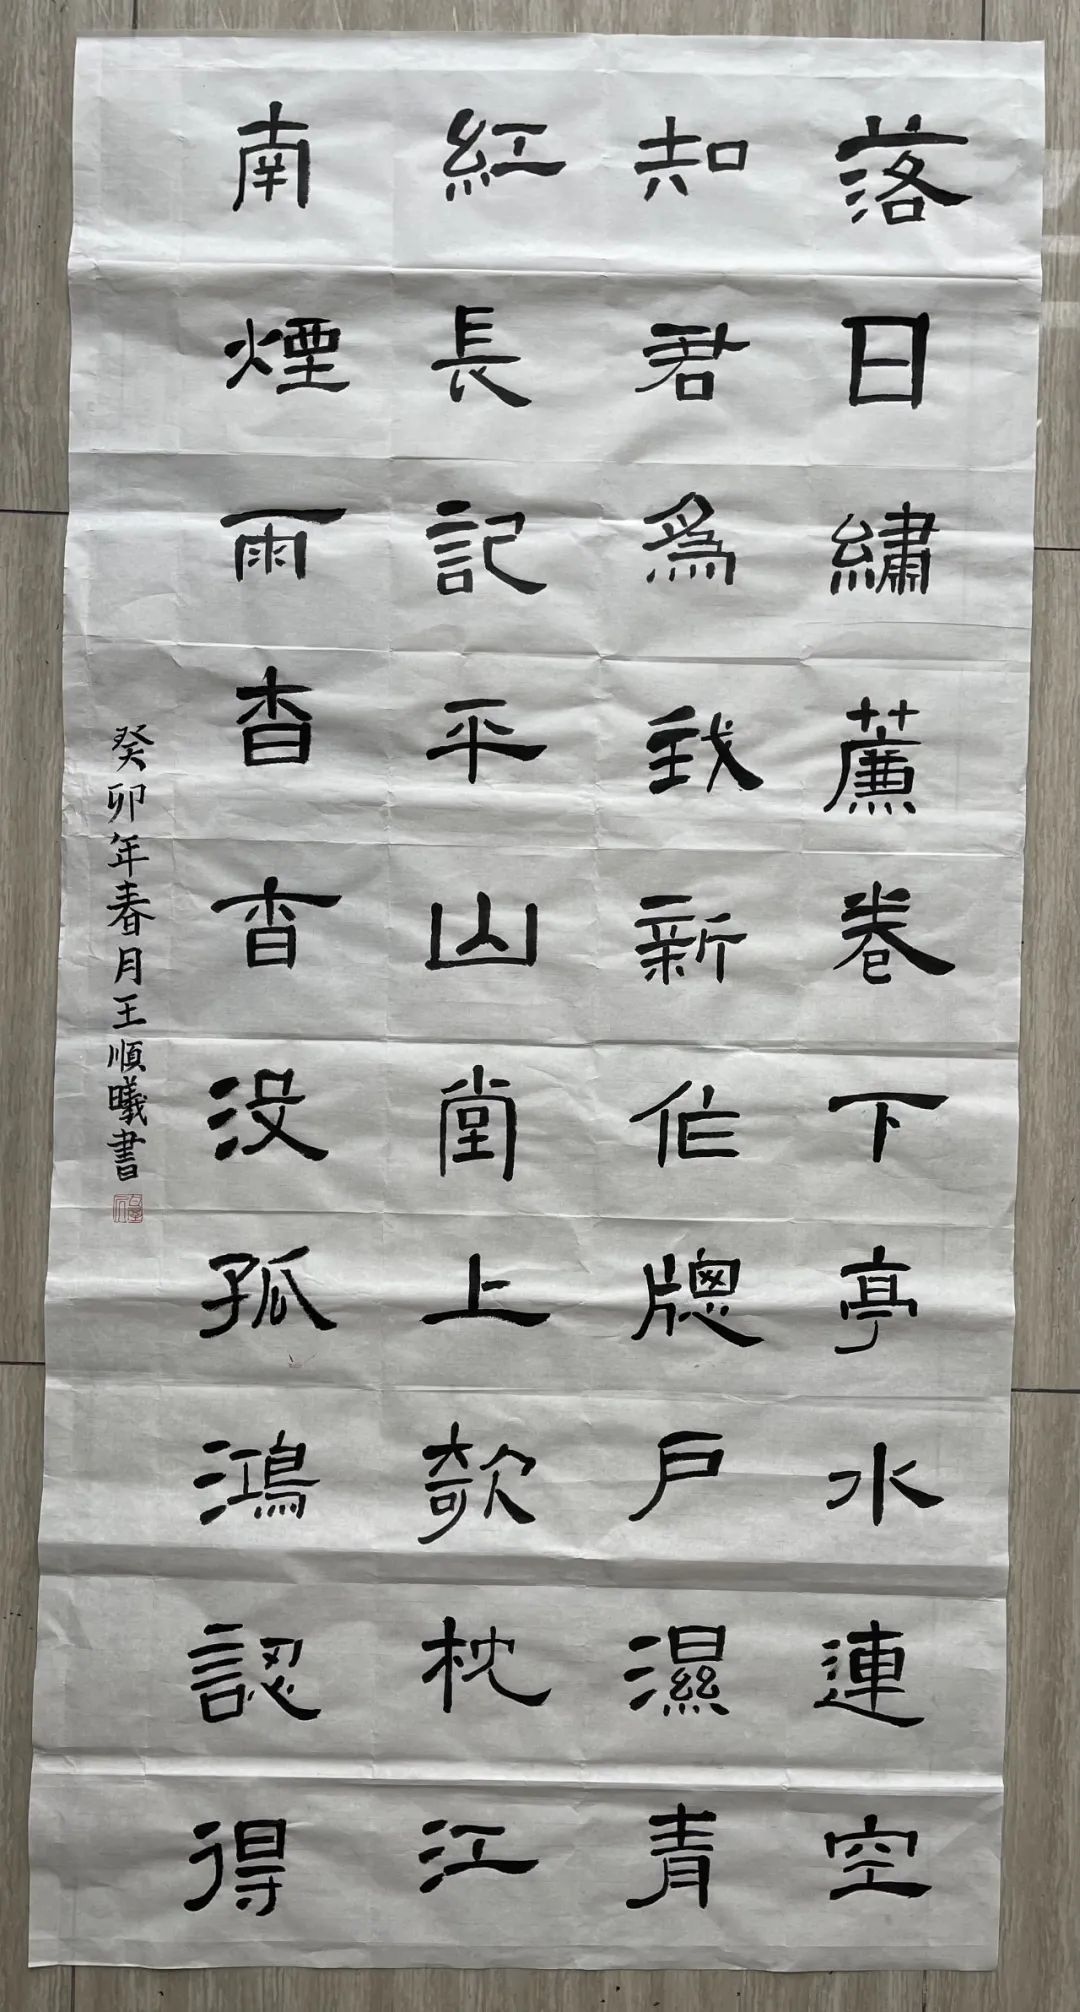 落日繡薕卷下亭水連空
知君爲我新作牕戶濕青
紅長記平山堂上欹枕江
南煙雨杳杳没孤鴻認得
癸卯年春月王順曦書